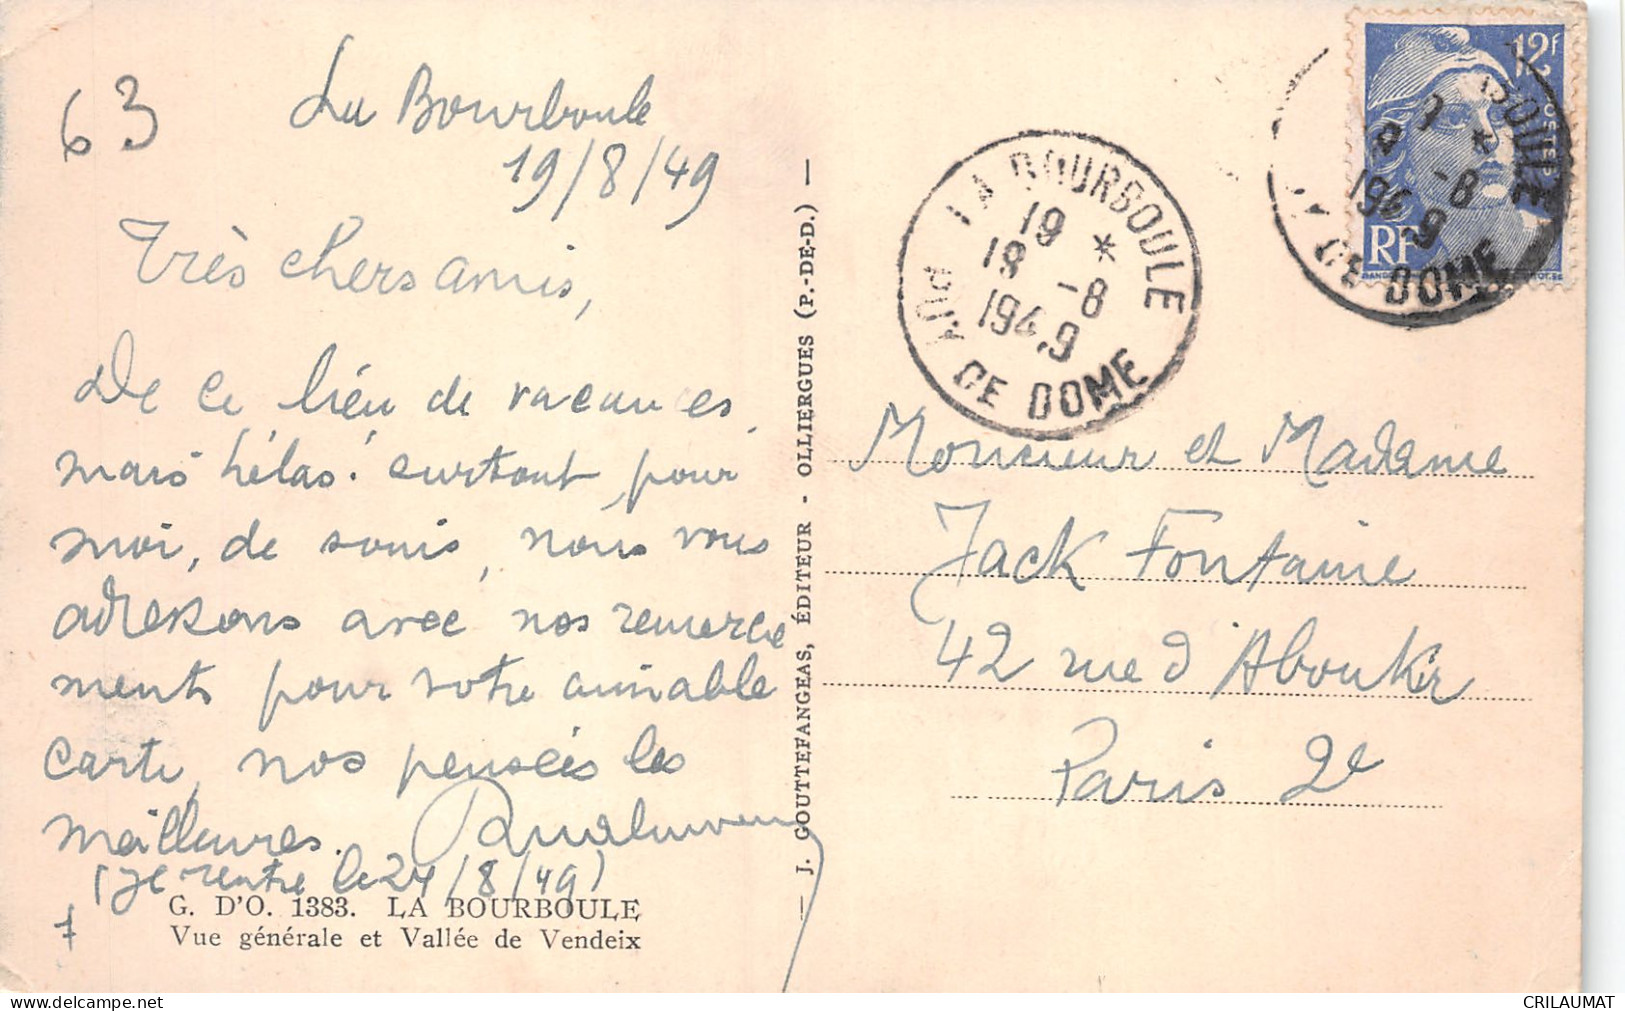 63
La Bourboule
19/8/49
Très chers amis,
De ce lieu de vacances,
mais hélas! surtout, pour
moi, de soins, nous vous
adressons avec nos remercie
ments pour votre aimable
carte, nos pensées les
meilleures.
(je rentre le 24/8/49)
G. D'O. 1383. LA BOURBOULE
Vue générale et Vallée de Vendeix
J. GOUTTEFANGEAS, ÉDITEUR - OLLIERGUES (P.-DE-D.)
LA BOURBOULE
19 *
19 -8
1949
PUY DE DOME
12F
RF
BOULE
-8
1949
DE DOME
Monsieur et Madame
Jack Fontaine
42 rue d'Aboukir
Paris 2e
CRILAUMAT